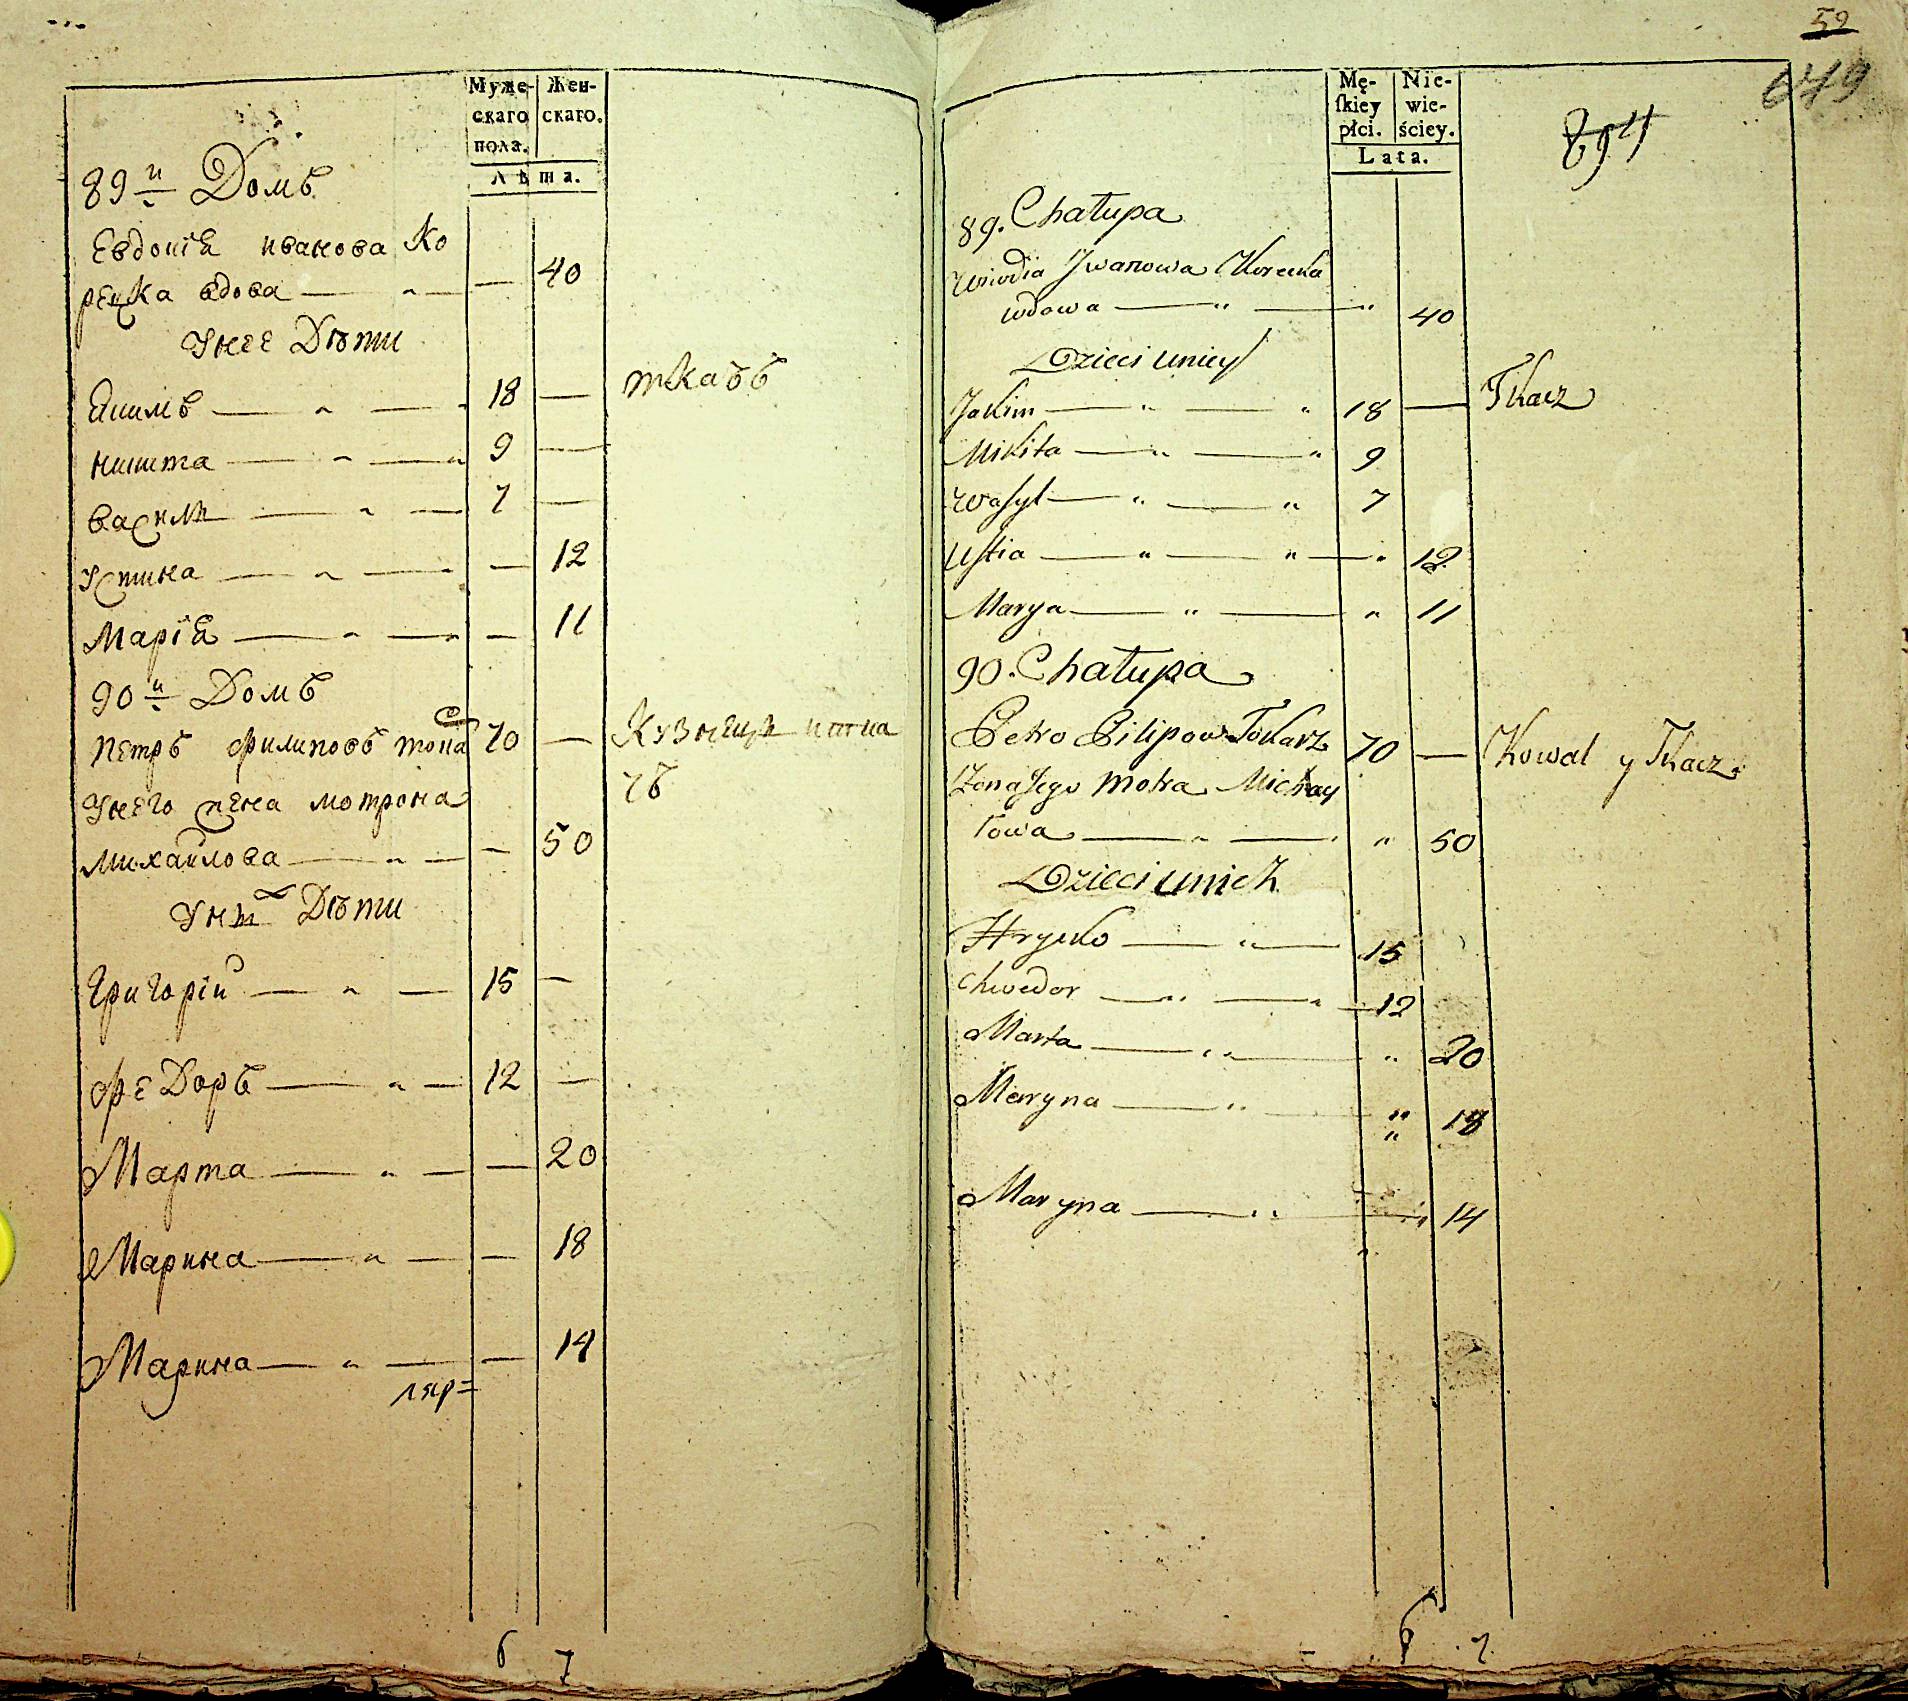 Муже-
скаго
пола.
Жен-
скаго.
Лѣта.
89й Домъ
Евдокія иванова Ко
рецка вдова — „ — — 40
Унее Дѣти
Якимъ — „ — 18 — ткачъ
никита — „ — 9 —
василь — „ — 7 —
Устина — „ — — 12
Марія — „ — — 11
90й Домъ
Петръ филиповъ тока 70 — Кузнецъ итка
чъ
Унего жена мотрона
михайлова — „ — — 50
Дѣти
Григорій — „ — 15 —
феДоръ — „ — 12 —
Марта — „ — — 20
Марина — „ — — 18
Марина — „ — — 14
6 7
59
649
894
Mę-
ſkiey
płci.
Nie-
wie-
ściey.
Lata.
89. Chałupa
Iwanowa Korecka
wdowa — „ — „ 40
Dzieci uniey
Jakim — „ — „ 18 — Tkacz
Mikita — „ — „ 9
Waſyl — „ — „ 7
Uſtia — „ — „ — „ 12
Marya — „ — „ 11
90. Chałupa
Petro Pilipow Tokarz 70 — Kowal y Tkacz
Żona Jego Motra Michay
łowa — „ — „ 50
Dzieci unich
Hrycko — „ — 15
Chwedor — „ — „ — 12
Marta — „ — „ 20
Maryna — „ — „ 18
Maryna — „ — „ 14
6 7